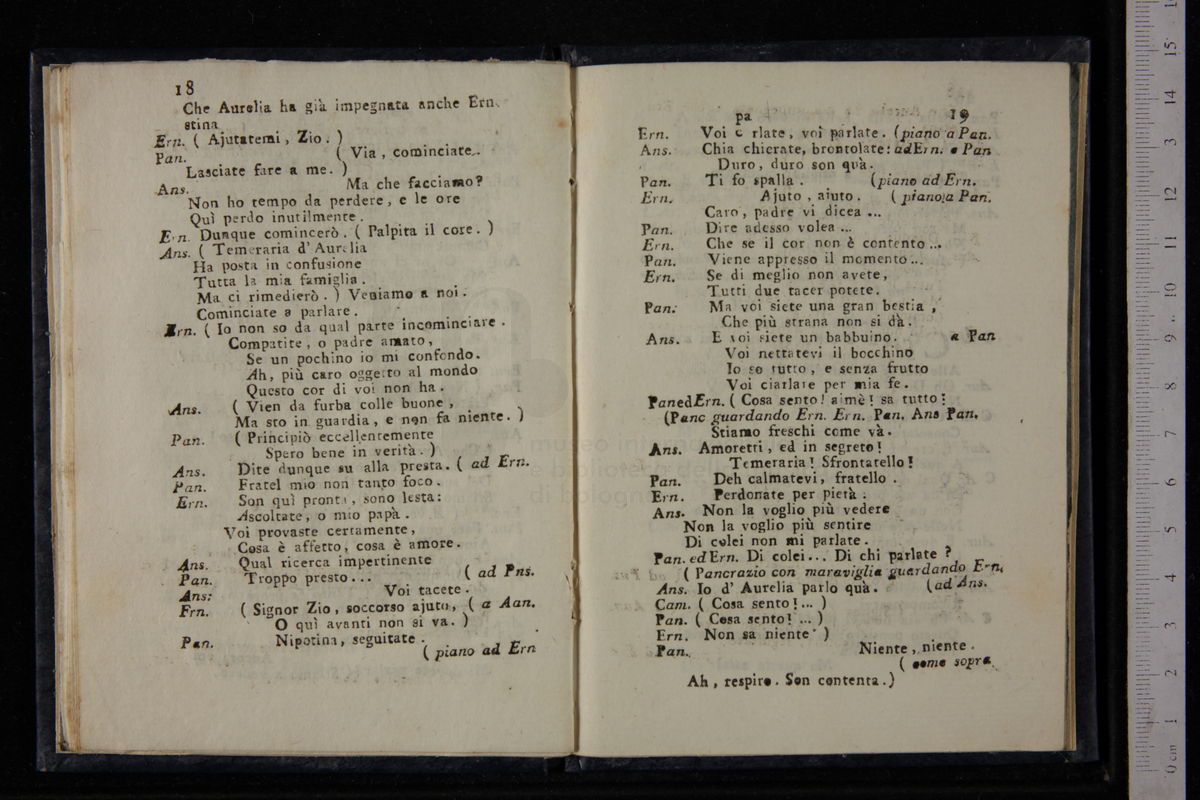 18
Che Aurelia ha già impegnata anche Ern.
stina
Ern. ( Ajutatemi, Zio. )
Pan. ( Via, cominciate.
Lasciate fare a me. )
Ans. Ma che facciamo?
Non ho tempo da perdere, e le ore
Quì perdo inutilmente.
Ern. Dunque comincerò. ( Palpita il core. )
Ans. ( Temeraria d' Aurelia
Ha posta in confusione
Tutta la mia famiglia.
Ma ci rimedierò. ) Veniamo a noi.
Cominciate a parlare.
Ern. ( Io non so da qual parte incominciare.
Compatite, o padre amato,
Se un pochino io mi confondo.
Ah, più caro oggetto al mondo
Questo cor di voi non ha.
Ans. ( Vien da furba colle buone,
Ma sto in guardia, e non fa niente. )
Pan. ( Principiò eccellentemente
Spero bene in verità. )
Ans. Dite dunque su alla presta. ( ad Ern.
Pan. Fratel mio non tanto foco.
Ern. Son quì pronta, sono lesta:
Ascoltate, o mio papà.
Voi provaste certamente,
Cosa è affetto, cosa è amore.
Ans. Qual ricerca impertinente
Pan. Troppo presto... ( ad Pns.
Ans: Voi tacete.
Frn. ( Signor Zio, soccorso ajuto, ( a Aan.
O quì avanti non si va. )
Pan. Nipotina, seguitate.
( piano ad Ern
19
pa
Ern. Voi c rlate, voi parlate. (piano a Pan.
Ans. Chia chierate, brontolate: ad Ern. e Pan
Duro, duro son quà.
Pan. Ti fo spalla. (piano ad Ern.
Ern. Ajuto, aiuto. ( piano a Pan.
Caro, padre vi dicea ...
Pan. Dire adesso volea ...
Ern. Che se il cor non è contento ...
Pan. Viene appresso il momento ...
Ern. Se di meglio non avete,
Tutti due tacer potete.
Pan. Ma voi siete una gran bestia,
Che più strana non si dà.
Ans. E voi siete un babbuino. a Pan
Voi nettatevi il bocchino
Io so tutto, e senza frutto
Voi ciarlate per mia fe.
Pan ed Ern. ( Cosa sento! aimè! sa tutto!
(Panc guardando Ern. Ern. Pan. Ans Pan.
Stiamo freschi come và.
Ans. Amoretti, ed in segreto!
Temeraria! Sfrontatello!
Pan. Deh calmatevi, fratello.
Ern. Perdonate per pietà.
Ans. Non la voglio più vedere
Non la voglio più sentire
Di colei non mi parlate.
Pan. ed Ern. Di colei... Di chi parlate?
( Pancrazio con maraviglia guardando Ern.
Ans. Io d' Aurelia parlo quà. (ad Ans.
Cam. ( Cosa sento!... )
Pan. ( Cosa sento! ... )
Ern. Non sa niente )
Pan. Niente, niente.
( come sopra.
Ah, respiro. Son contenta.)
museo
biblioteca
di bologna
0 cm 1 2 3 4 5 6 7 8 9 10 11 12 13 14 15